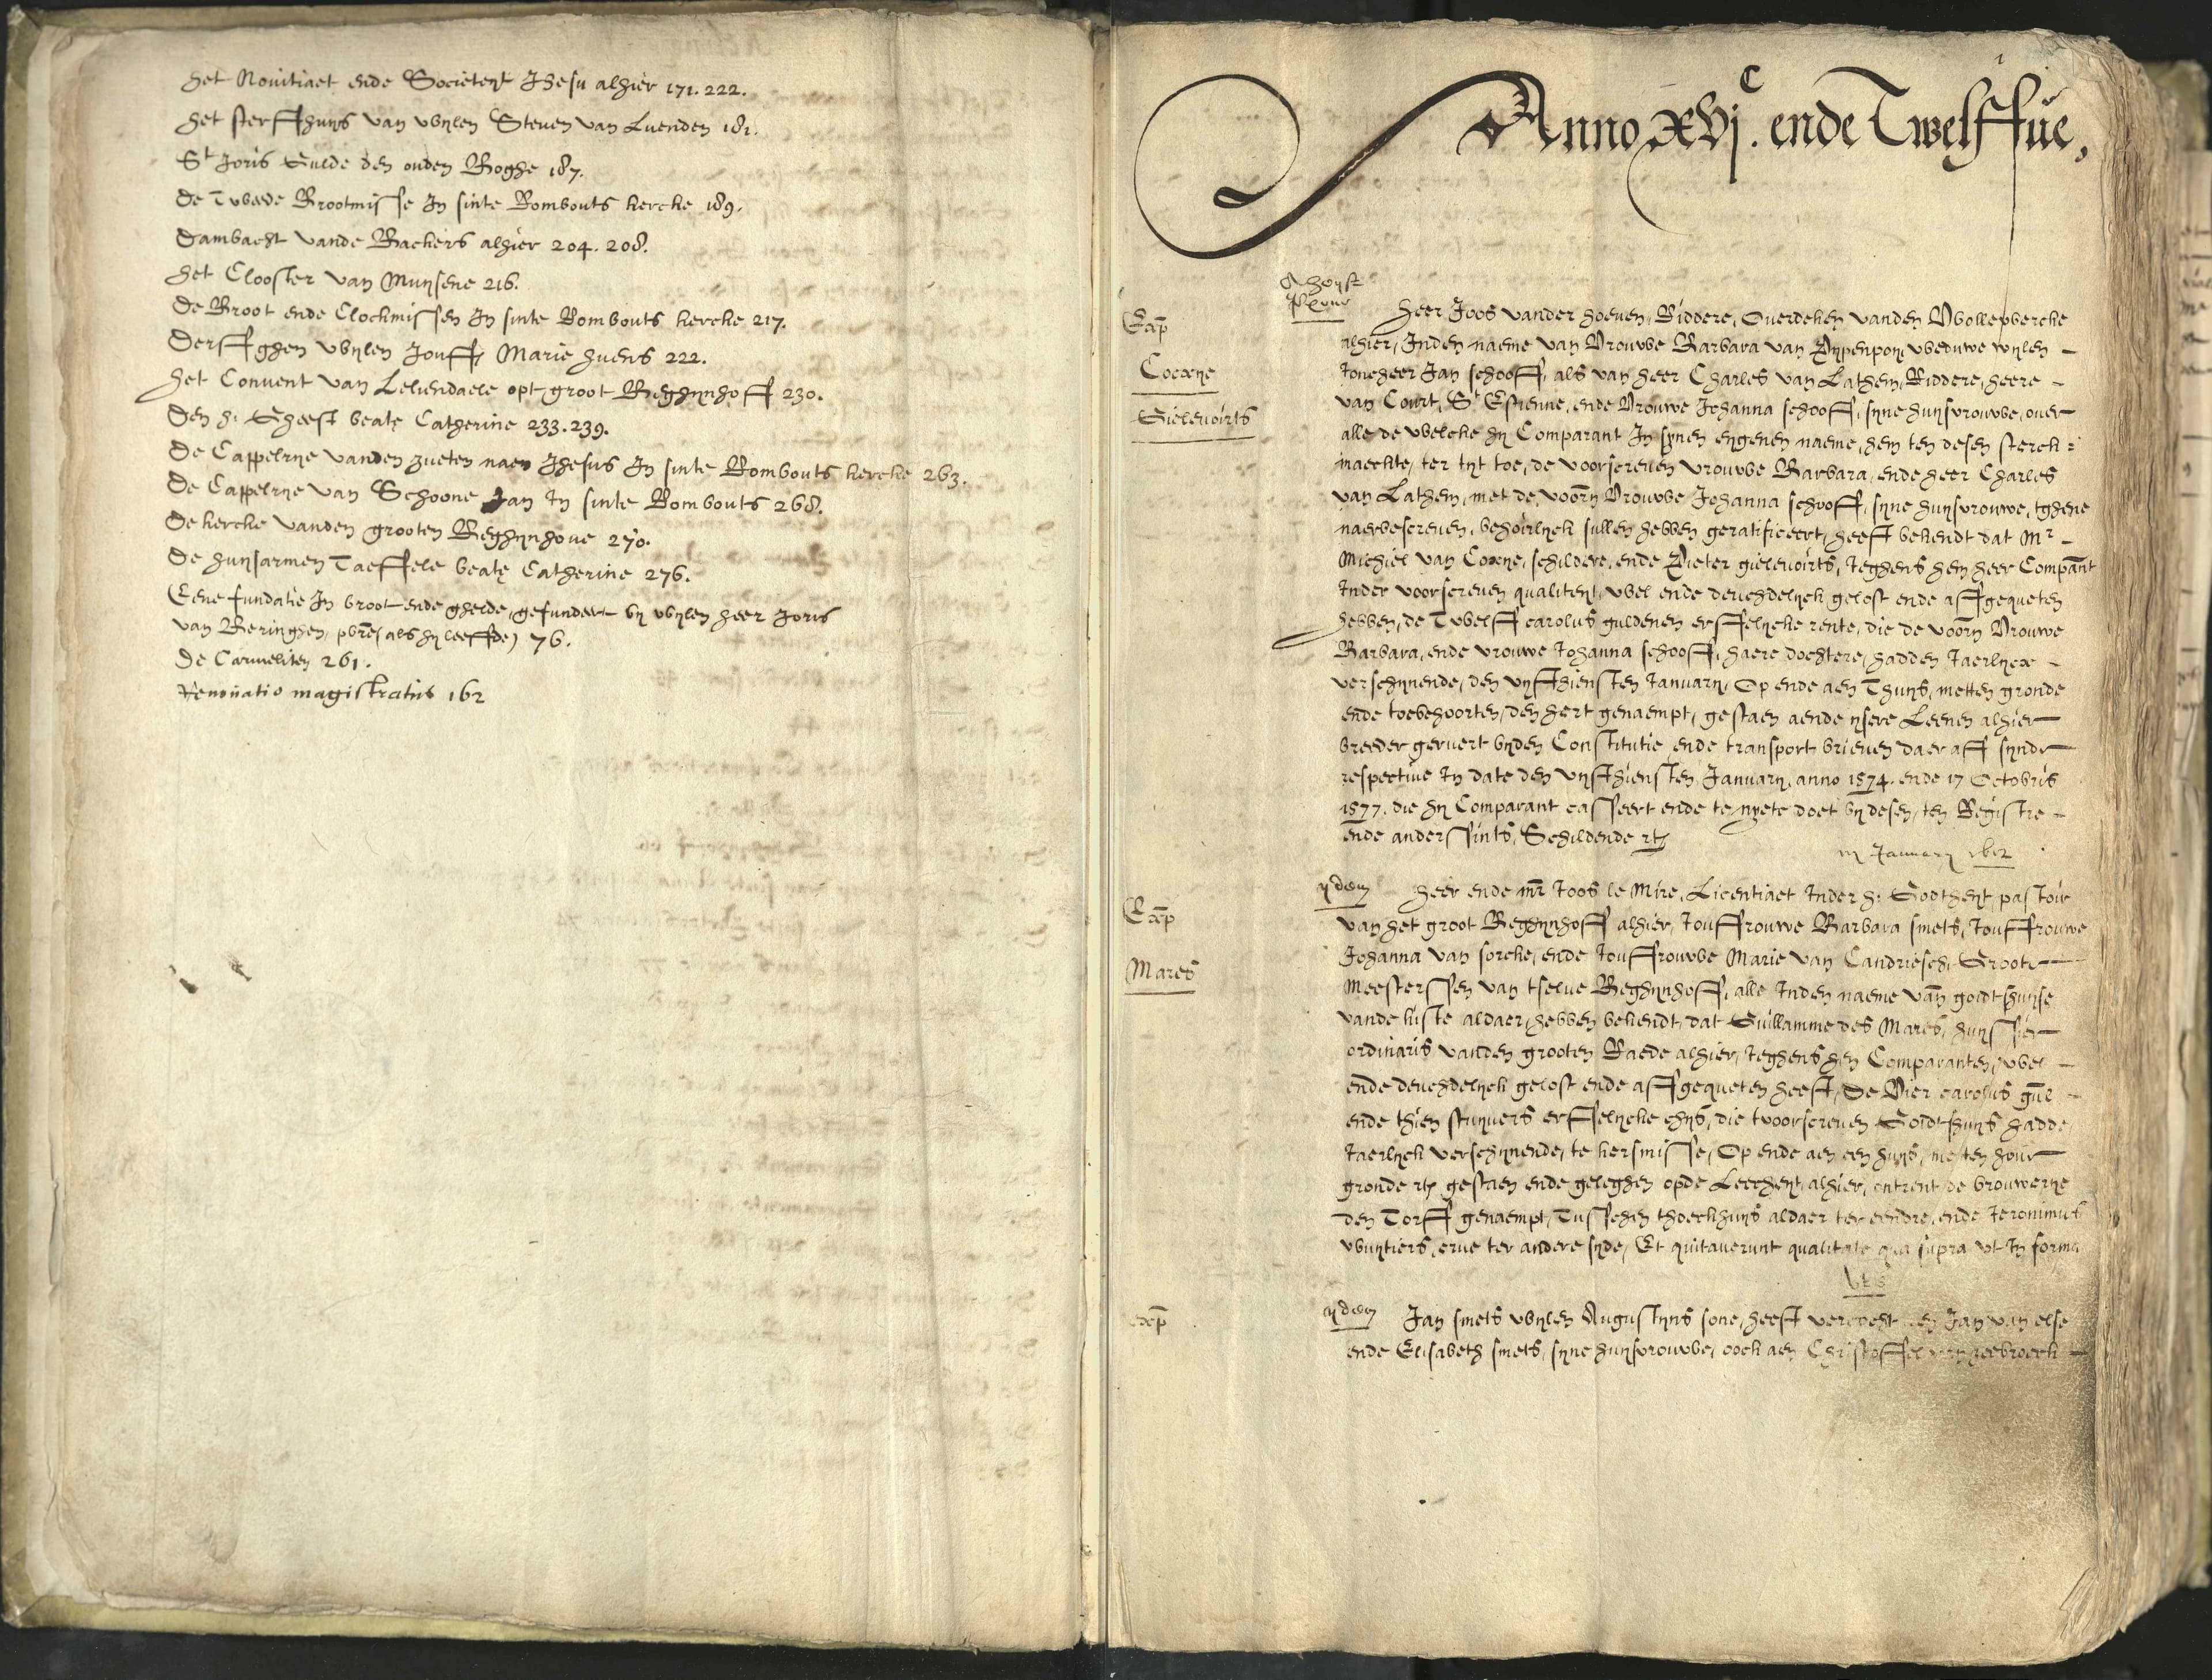 het Nouitiaet ende Societeyt Jhesu alhier 171. 222.
het sterffhuys van wylen Steuen van Luenden 181.
St Joris Gulde den ouden Boghe 187.
De Tweede Brootmisse In sinte Rombouts kercke 189.
Dambacht vande Backers alhier 204. 208.
het Clooster van Muysene 216.
De Broot ende Clockmissen In sinte Rombouts kercke 217.
Derffghen wylen Jouffr Marie huens 222.
het Conuent van Leliendaele opt groot Beghynhoff 230.
Den h. Gheest beate Catherine 233. 239.
De Cappelrye vanden zueten naem Jhesus In sinte Rombouts kercke 263.
De Cappelrye van Schoone Jan In sinte Rombouts 268.
De kercke vanden grooten Beghynhoue 270.
De huysarmen Taeffele beate Catherine 276.
Eene fundatie In broot ende ghelde, gefundeert by wylen heer Joris
van Beringhen, pbre (als hy leeffde) 76.
De Carmeliten 261.
Renouatio magistratus 162
1
Anno XVJ C. ende Twelffue,
Exp
Cocxye
Gieleuoirts
heer Joos vander hoeuen, Riddere, Ouerdeken vanden Wollewercke
alhier, Inden naeme van Vrouwe Barbara van Pypenpoy, weduwe wylen
Joncheer Jan schooff, als van heer Charles van Lathem, Riddere, heere
van Court, St Estienne, ende Vrouwe Johanna schooff, syne huysvrouwe, ouer
alle de welcke hy Comparant In synen eygenen naeme, hem ten desen sterck
maeckte, ter tyt toe, de voorscreuen vrouwe Barbara, ende heer Charles
van Lathem, met de voorn Vrouwe Johanna schooff, syne huysvrouwe, tghene
naerbescreuen, behoirlyck sullen hebben geratificeert, heeft bekendt dat Mr
Michiel van Cocxye, schildere, ende Pieter gieleuoirts, Jeghens hem heer Compant
Inder voorscreuen qualiteyt, wel ende deuchdelyck gelost ende affgequeten
hebben, de Twelff carolus guldenen erffelycke rente, die de voorn Vrouwe
Barbara, ende vrouwe Johanna schooff, haere dochtere, hadden Jaerlycx
verschynende, den vyffthiensten January, Op ende aen Thuys, metten gronde
ende toebehoorten, den hert genaempt, gestaen aende ysere Leenen alhier
breeder geruert byden Constitutie ende transport brieuen daer aff synde
respectiue In date den vyffthiensten January, anno 1574. ende 17 Octobris
1577. die hy Comparant casseert ende te nyete doet by desen, ten Registre
ende anderssints, Schildende etc
January 1612
Exp
Mares
ydem heer ende mr Joos le Mire, Licentiaet Inder h. Godtheyt, pastoir
van het groot Beghynhoff alhier, Jouffrouwe Barbara smets, Jouffrouwe
Johanna van sorcke, ende Jouffrouwe Marie van Candriesch, Groote
Meesterssen van tselue Beghynhoff, alle Inden naeme van goidtshuyse
vande aldaer, hebben bekendt, dat Guillamme des Mares, huyssier
ordinaris vanden grooten Raede alhier, Jeghens hen Comparanten, wel
ende deuchdelyck gelost ende affgequeten heeft, De Vier carolus gul
ende thien stuyuers erffelycke chys, die tvoorscreuen Goidtshuys hadde
Jaerlyck verschynende, te kersmisse, Op ende aen een huys, metten houe
gronde etc gestaen ende geleghen opde Leecheyt alhier, ontrent de brouwerye
den Torff genaempt, Tusschen thoeckhuys aldaer ter eendre, ende Jeronimus
wuytiers, erue ter andere syde, Et quitauerunt qualitate qua supra vt In forma
exp
ydem Jan smets wylen Augustyns sone, heeft vercocht aen Jan van else
ende Elisabeth smets, syne huysvrouwe, oock aen Christoffel